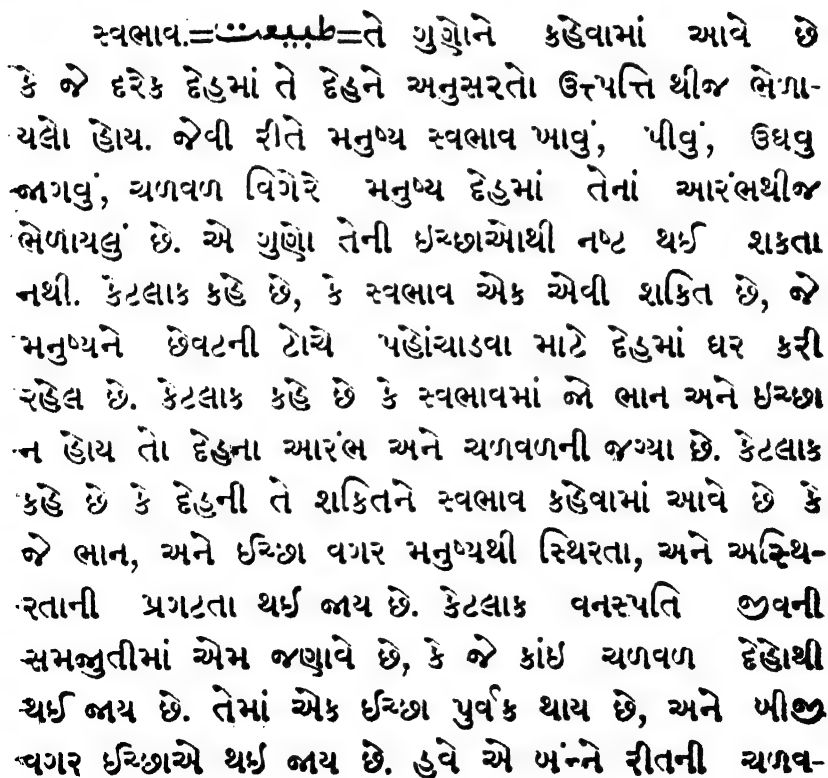 સ્વભાવ.=طبیعت=તે ગુણોને કહેવામાં આવે છે
કે જે દરેક દેહમાં તે દેહને અનુસરતો ઉત્તપત્તિ થીજ ભેળા-
યલો હોય. જેવી રીતે મનુષ્ય સ્વભાવ ખાવું, પીવું, ઉઘવુ
જાગવું, ચળવળ વિગેરે મનુષ્ય દેહમાં તેનાં આરંભથીજ
ભેળાયલું છે. એ ગુણો તેની ઇચ્છાઓથી નષ્ટ થઈ શકતા
નથી. કેટલાક કહે છે, કે સ્વભાવ એક એવી શકિત છે, જે
મનુષ્યને છેવટની ટોચે પહોંચાડવા માટે દેહમાં ઘર કરી
રહેલ છે. કેટલાક કહે છે કે સ્વભાવમાં જો ભાન અને ઇચ્છા
ન હોય તો દેહના આરંભ અને ચળવળની જગ્યા છે. કેટલાક
કહે છે કે દેહની તે શકિતને સ્વભાવ કહેવામાં આવે છે કે
જે ભાન, અને ઈચ્છા વગર મનુષ્યથી સ્થિરતા, અને અસ્થિ-
રતાની પ્રગટતા થઈ જાય છે. કેટલાક વનસ્પતિ જીવની
સમજુતીમાં એમ જણાવે છે, કે જે કાંઇ ચળવળ દેહોથી
થઈ જાય છે. તેમાં એક ઈચ્છા પુર્વક થાય છે, અને બીજી
વગર ઈચ્છાએ થઇ જાય છે. હવે એ બંન્ને રીતની ચળવ-